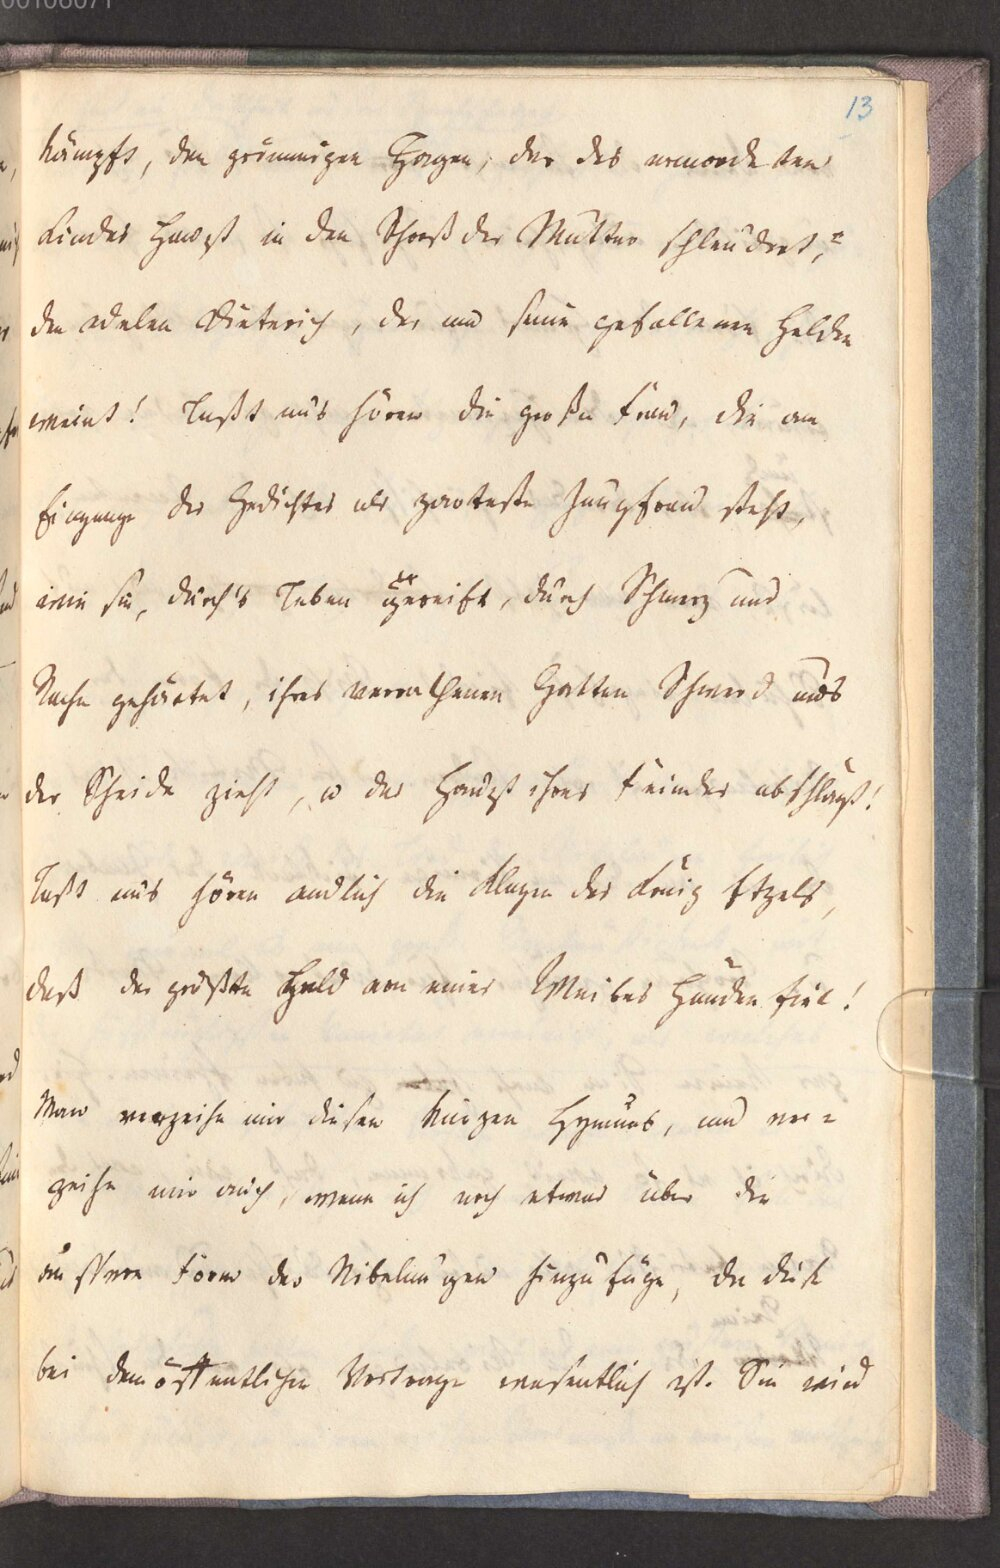 00106071
13
kämpft, den grimmigen Hagen, der des ermordeten
Kindes Haupt in den Schooß der Mutter schleudert,
den edelen Dieterich, der um seine gefallenen Helden
weint! Laßt uns hören die große Frau, die am
Eingange des Gedichtes als zarteste Jungfrau steht,
wie sie, durch's Leben gereift, durch Schmerz und
Rache gehärtet, ihres verrathenen Gatten Schwerd aus
der Scheide zieht, u das Haupt ihres Feindes abschlägt!
Laßt uns hören endlich die Klagen des König Etzels,
daß der größte Held von eines Weibes Händen fiel!
Man verzeihe mir diesen kurzen Hymnus, und ver=
zeihe mir auch, wenn ich noch etwas über die
äussere Form der Nibelungen hinzufüge, da diese
bei dem öffentlichen Vortrage wesentlich ist. Sie wird